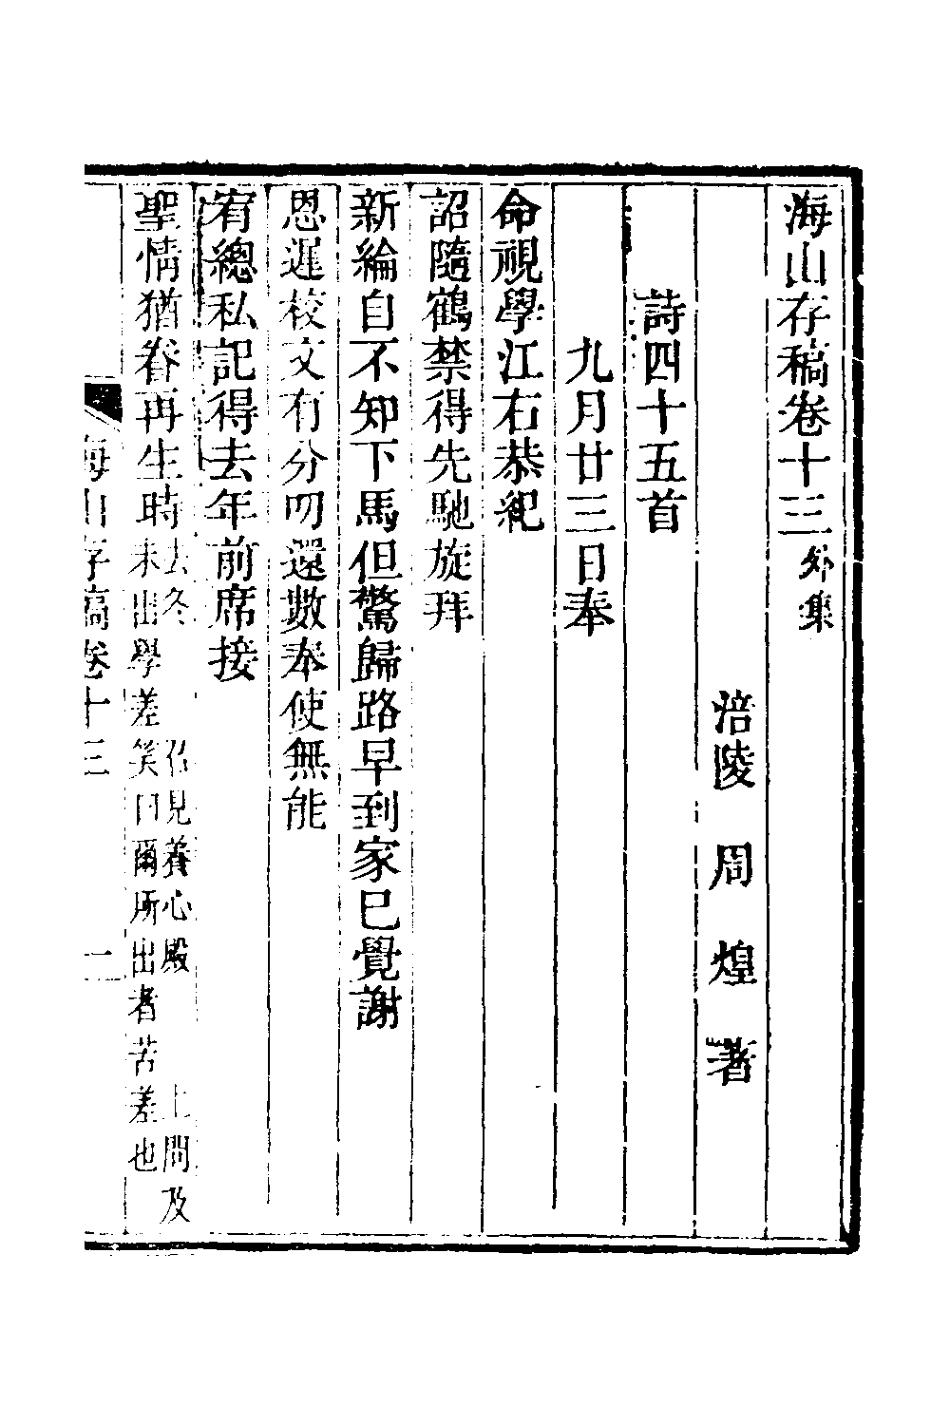 海山存稿卷十三外集
涪陵周煌著
詩四十五首
九月廿三日奉
命視學江右恭紀
詔隨鶴禁得先馳旋拜
新綸自不知下馬但驚歸路早到家已覺謝
恩遲校文有分叨還數奉使無能
宥總私記得去年前席接
聖情猶眷再生時去冬 召見養心殿 上問及
未出學差笑曰爾所出者苦差也
海山存稿卷十三 一